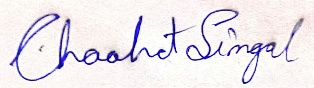 Chaahat Singal